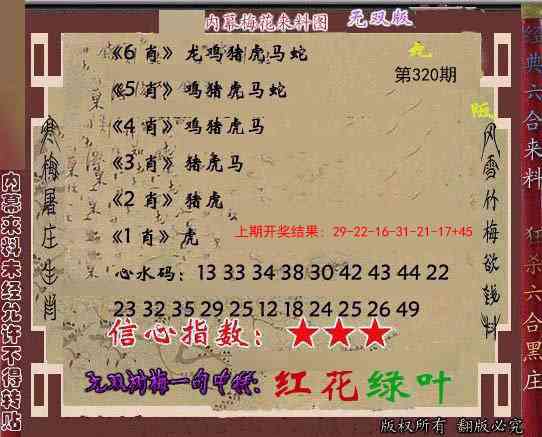 内幕梅花来料图 无双版
《6 肖》 龙鸡猪虎马蛇
第320期
《5 肖》 鸡猪虎马蛇
《4 肖》 鸡猪虎马
《3 肖》 猪虎马
《2 肖》 猪虎
《1 肖》 虎
上期开奖结果：29-22-16-31-21-17+45
心水码：13 33 34 38 30 42 43 44 22
23 32 35 29 25 12 18 24 25 26 49
信心指数：★★★
红花绿叶
版权所有 翻版必究
寒梅屠庄生肖
风雪竹梅欲钱料
内幕来料未经允许不得转贴
经典六合来料 狂杀六合黑庄